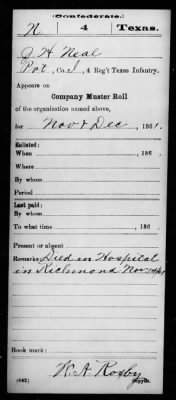 (Confederate.)
N 4 Texas.
J. H. Neal
Pvt, Co. I, 4 Reg't Texas Infantry.
Appears on
Company Muster Roll
of the organization named above,
for Nov & Dec, 1861.
Enlisted:
When , 186 .
Where
By whom
Period
Last paid:
By whom
To what time , 186 .
Present or absent
Remarks: Died in Hospital
in Richmond Nov 14/61
Book mark:
W. A. Rosby
(642) Copyist.